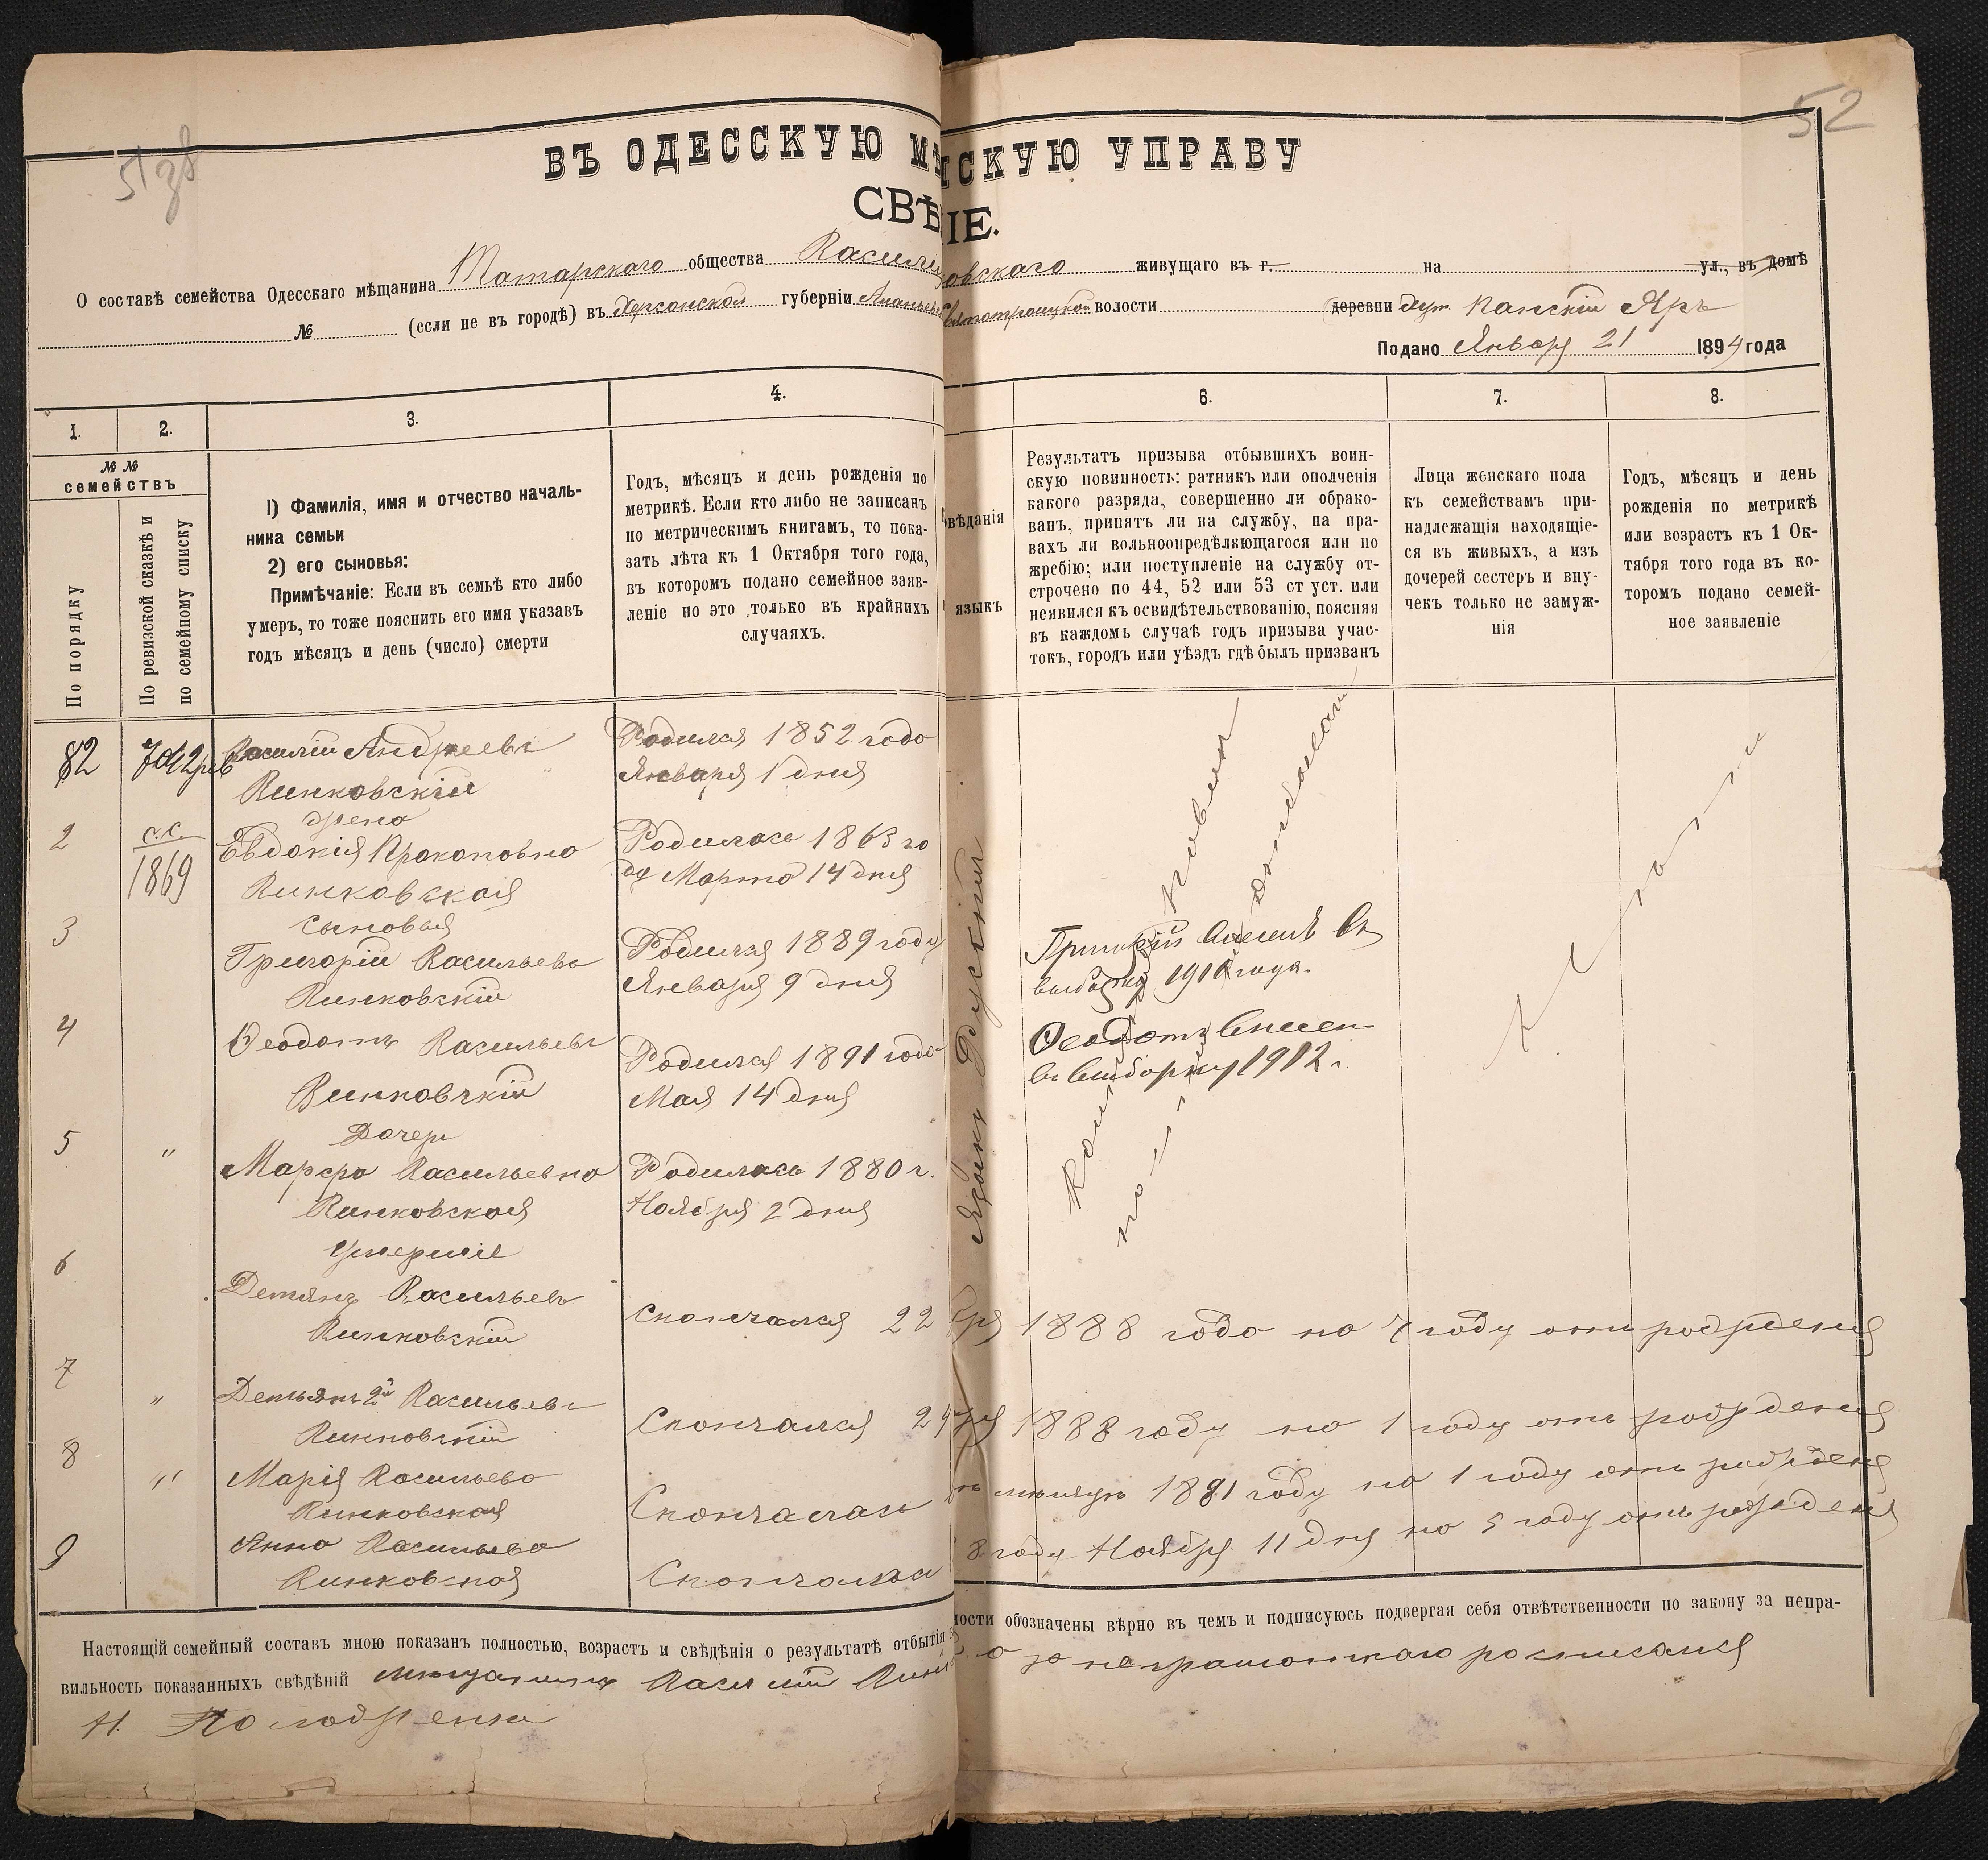 52
ВЪ ОДЕССКУЮ МѢ НСКУЮ УПРАВУ
СВѢ ІЕ.
О составѣ семейства Одесскаго мѣщанина Татарскаго общества Васили овскаго живущаго въ г. на ул., въ домѣ
№ (если не въ городѣ) въ Херсонской губерніи Ананьев Святотроицкой волости деревни хут Панскій Яръ
Подано Января 21 1894 года
1. 2. 3. 4. 6. 7. 8.
№ №
семействъ
По порядку
По ревизской сказкѣ и
по семейному списку
1) Фамилія, имя и отчество началь-
ника семьи
2) его сыновья:
Примѣчаніе: Если въ семьѣ кто либо
умеръ, то тоже пояснить его имя указавъ
годъ мѣсяцъ и день (число) смерти
Годъ, мѣсяцъ и день рожденія по
метрикѣ. Если кто либо не записанъ
по метрическимъ книгамъ, то пока-
зать лѣта къ 1 Октября того года,
въ которомъ подано семейное заяв-
леніе но это только въ крайнихъ
случаяхъ.
овѣданія
языкъ
Результатъ призыва отбывшихъ воин-
скую повинность: ратникъ или ополченія
какого разряда, совершенно ли обрако-
ванъ, принятъ ли на службу, на пра-
вахъ ли вольноопредѣляющагося или по
жребію; или поступленіе на службу от-
строчено по 44, 52 или 53 ст уст. или
неявился къ освидѣтельствованію, поясняя
въ каждомъ случаѣ годъ призыва учас-
токъ, городъ или уѣздъ гдѣ былъ призванъ
Лица женскаго пола
къ семействамъ при-
надлежащія находящіе-
ся въ живыхъ, а изъ
дочерей сестеръ и вну-
чекъ только не замуж-
нія
Годъ, мѣсяцъ и день
рожденія по метрикѣ
или возрастъ къ 1 Ок-
тября того года въ ко-
торомъ подано семей-
ное заявленіе
82 Василій Андреевъ Родился 1852 года
Винковскій Января 1 дня
жена
2 с.с. Евдокія Прокоповна Родилась 1863 го
1869 Винковская ду Марта 14 дня
сыновья
3 Григорій Васильевъ Родился 1889 году Григорій внесенъ въ
Винковскій Января 9 дня выборку 1910 года.
4 Ѳеодотъ Васильевъ Родился 1891 года Ѳеодотъ внесен
Винковскій Мая 14 дня въ выборку 1912 г.
Языкъ Русскій
Дочери
5 " Марфа Васильевна Родилась 1880 г.
Винковская Ноября 2 дня
умершіе
6 Демянъ Васильевъ Скончался 22 бря 1888 года на 7 году отъ рожденія
Винковскій
7 " Демьянъ 2й Васильевъ Скончался 1888 году на 1 году отъ рожденія
Винковскій
8 " Марія Васильева Скончалась 1891 году на 1 году отъ рожденія
Винковская
9 Анна Васильева Скончалась 8 году Ноября 11 дня на 5 году отъ рожденія
Винковская
Настоящій семейный составъ мною показанъ полностью, возрастъ и свѣдѣнія о результатѣ отбытія в ности обозначены вѣрно въ чемъ и подписуюсь подвергая себя отвѣтственности по закону за непра-
вильность показанныхъ свѣдѣній мещанинъ Василій Винк а за неграмотнаго росписался